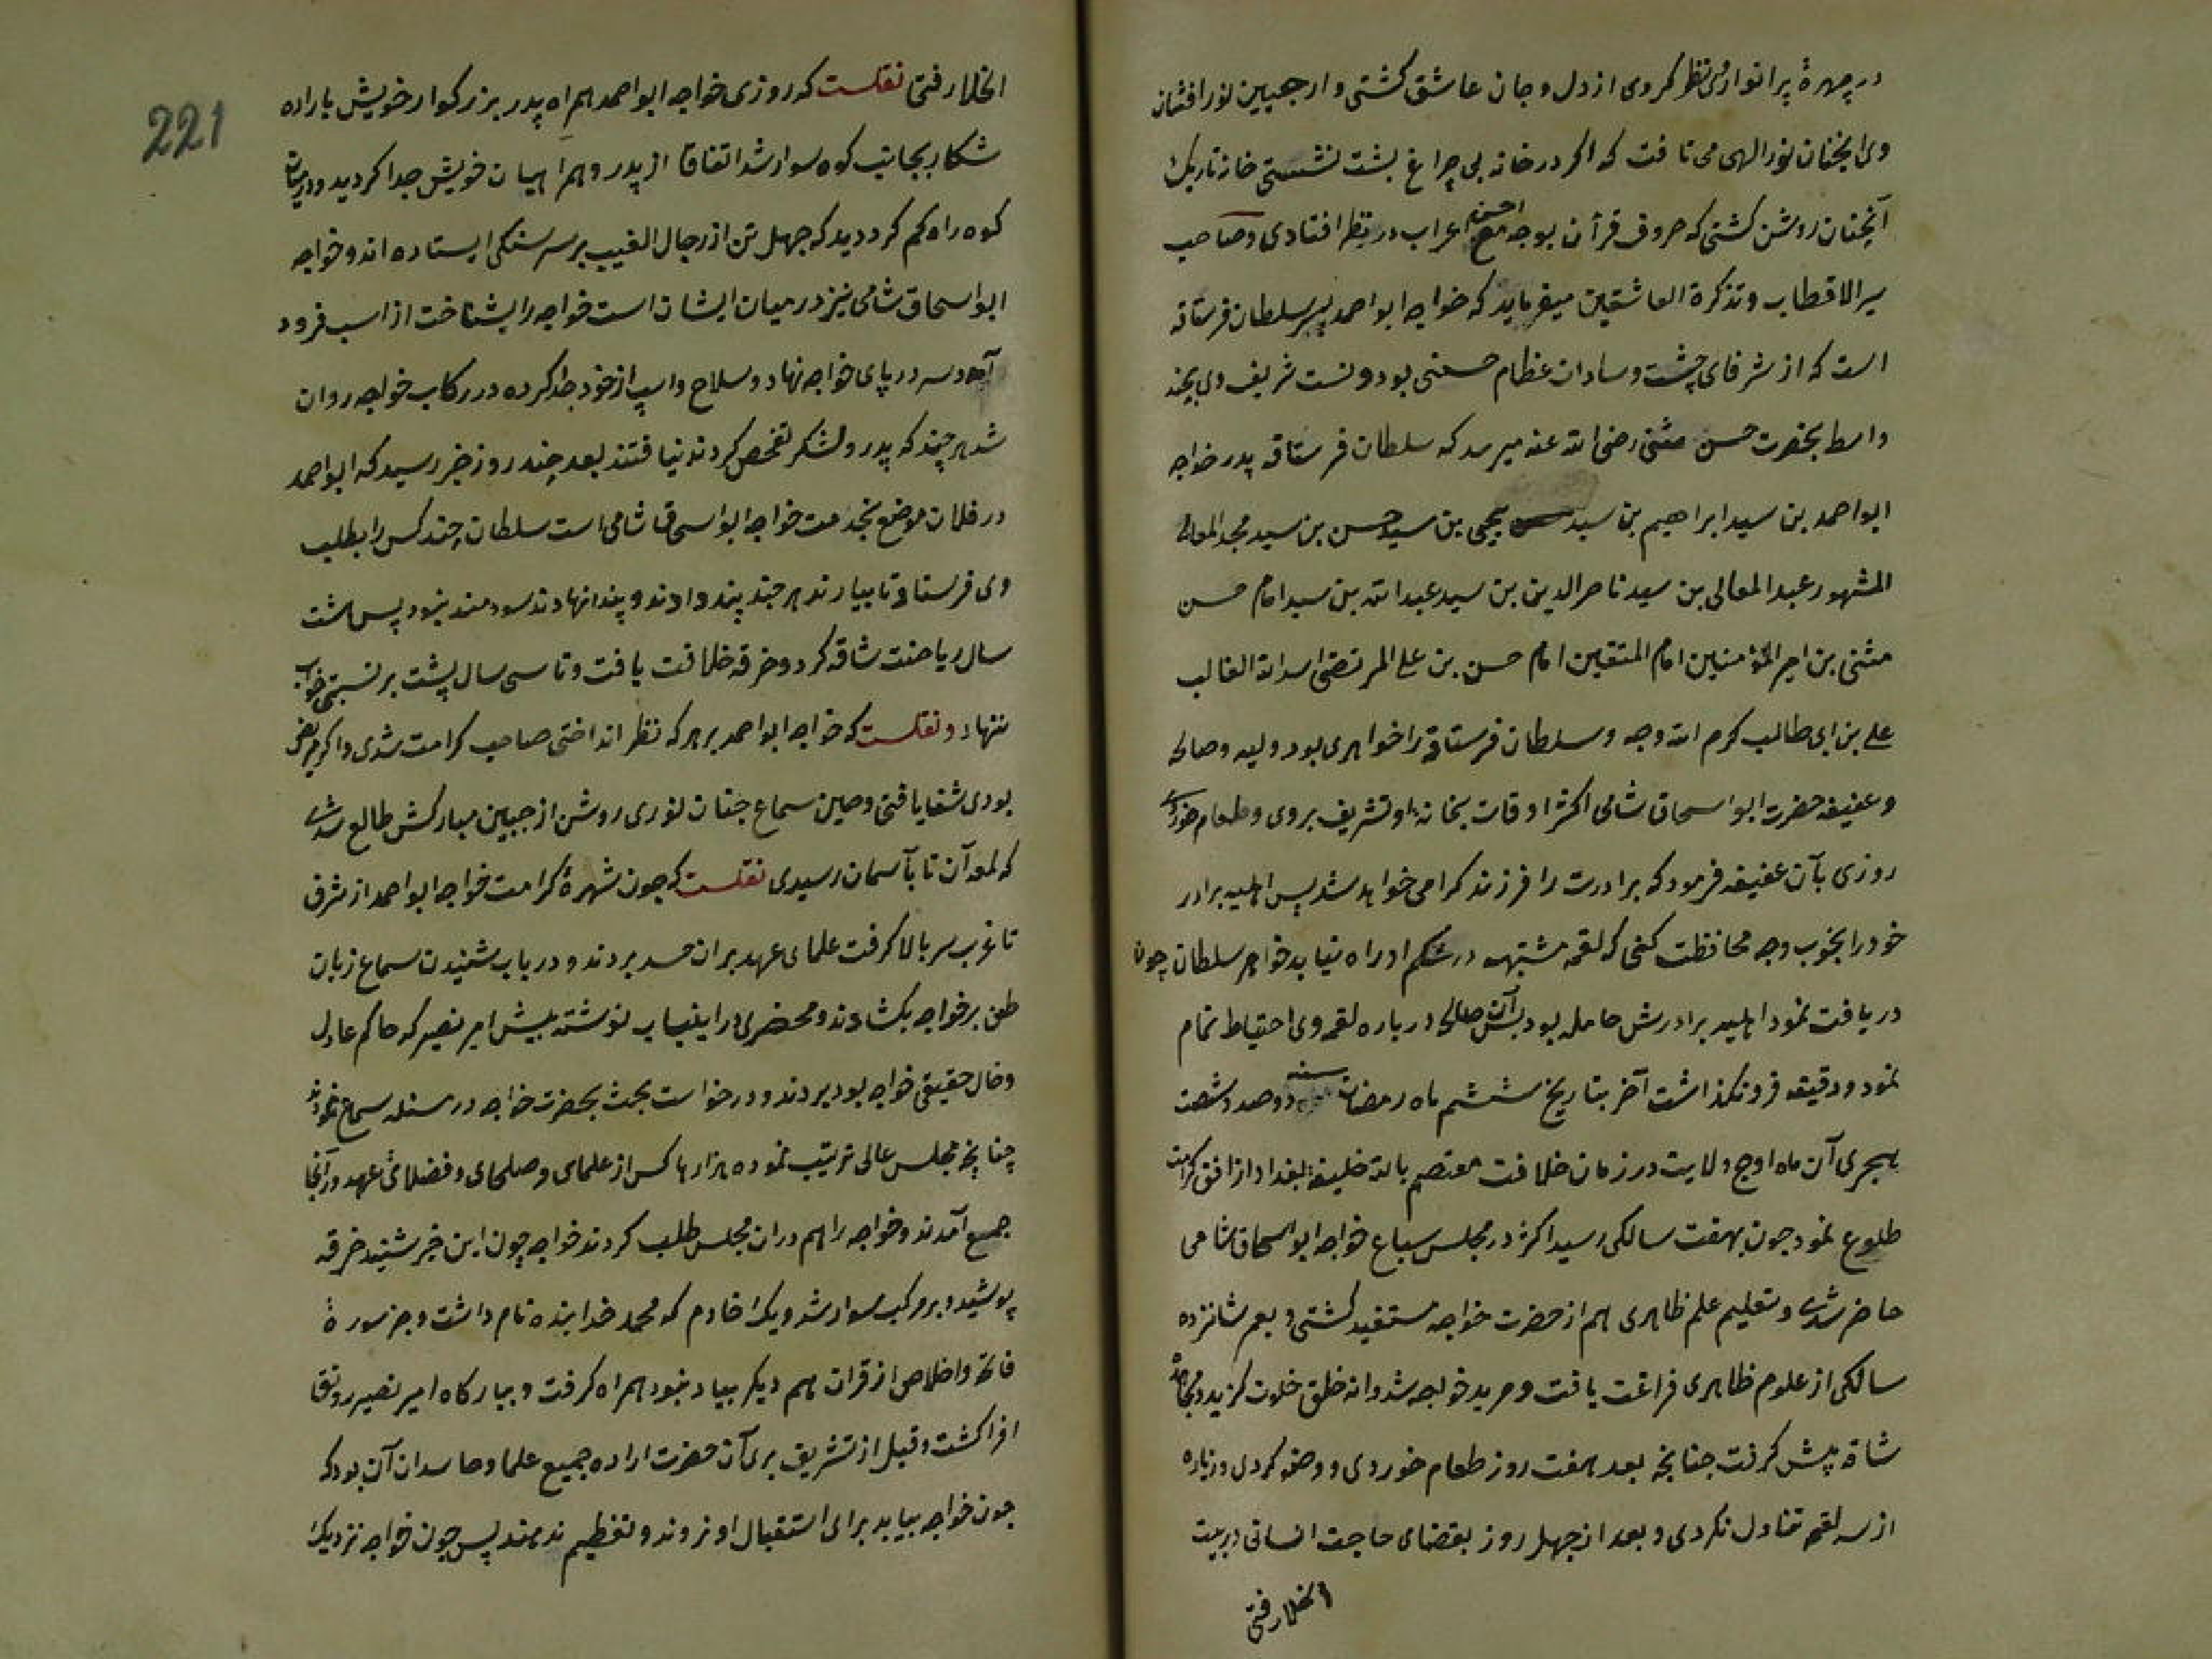 در چهرهٔ پر انوار وی نظر کروی از دل و جان عاشق کشتی و از جبین نور افشان
وی انچنان نور الهی می تافت که اکر در خانه بی چراغ بشت نشستی خانه تاریک
آنچنان روشن کشتی که حروف قرأن بوجه احسن مع اعراب در نظر افتادی و صاحب
سیر الاقطاب و تذکرة العاشقین میفرماید که خواجه ابو احمد پسر سلطان فرستاقه
است که از شرفای چشت و سادات عظام حسنی بود و نسبت شریف وی بچند
واسط بحضرت حسن مثنی رضی الله عنه میرسد که سلطان فرستاقه پدر خواجه
ابو احمد بن سید ابراهیم بن سید یحیی بن سید حسن بن سید مجد المعالی
المشهور عبد المعالی بن سید ناصر الدین بن سید عبد الله بن سید امام حسن
مثنی بن امیر المؤمنین امام المتقین امام حسن بن علی المرتضی اسد الله الغالب
علی بن ابی طالب کرم الله وجه و سلطان فرستاقه را خواهری بود ولیه و صالحه
و عفیفه حضرت ابو اسحاق شامی اکثر اوقات بخانه او تشریف بروی و طعام خوردی
روزی بآن عفیفه فرمود که برادرت را فرزند کرامی خواهد شد پس اهلیه برادر
خود را بخوب وجه محافظت کنی که لقمه مشتبهه در شکم او راه نیابد خواهر سلطان چون
دریافت نمود اهلیه برادرش حامله بود آن صالحه در باره لقمه وی احتیاط تمام
نمود و دقیقه فرو نکذاشت آخر بتاریخ ششم ماه رمضان سنه دو صد و شصت
هجری آن ماه اوج ولایت در زمان خلافت معتصم بالله خلیفه بغداد از افق کرامت
طلوع نمود چون بهفت سالکی رسید اکثر در مجلس سماع خواجه ابو اسحاق شامی
حاضر شدی و تعلیم علم ظاهری هم از حضرت خواجه مستفید کشتی و بعمر شانزده
سالکی از علوم ظاهری فراغت یافت و مرید خواجه شد و از خلق خلوت کزید و مجاهده
شاقه پیش کرفت چنانچه بعد هفت روز طعام خوردی و وضو کردی و زیاده
از سه لقمه تناول نکردی و بعد از چهل روز بقضای حاجت انسانی در بیت
الخلا رفتی
221
الخلا رفتی نقلست که روزی خواجه ابو احمد همراه پدر بزرکوار خویش باراده
شکار بجانب کوه سوار شد اتفاقا از پدر و همراهیان خویش جدا کردید و درمیان
کوه راه کم کرد دید که چهل تن از رجال الغیب بر سر سنکی ایستاده اند و خواجه
ابو اسحاق شامی نیز درمیان ایشان است خواجه را بشناخت از اسب فرود
آمد و سر در پای خواجه نهاد و سلاح و اسپ از خود جدا کرده در رکاب خواجه روان
شد هر چند که پدر و لشکر تفحص کردند نیافتند بعد چند روز خبر رسید که ابو احمد
در فلان موضع بخدمت خواجه ابو اسحاق شامی است سلطان چند کس را بطلب
وی فرستاد تا بیارند هر چند پند دادند و پندها نهادند سودمند نبود پس هشت
سال ریاضت شاقه کرد و خرقه خلافت یافت و تا سی سال پشت بر بستر خواب
ننهاد و نقلست که خواجه ابو احمد بر هر که نظر انداختی صاحب کرامت شدی و اکر مریض
بودی شفا یافتی و حین سماع چنان نوری روشن از جبین مبارکش طالع شدی
که لمعه آن تا بآسمان رسیدی نقلست که چون شهرهٔ کرامت خواجه ابو احمد از شرق
تا غرب سر بالا کرفت علمای عهد بران حسد بردند و در باب شنیدن سماع زبان
طعن بر خواجه بکشادند و محضری در اینباب نوشته پیش امیر نصیر که حاکم عادل
و خال حقیقی خواجه بود بردند و درخواست بحث بحضرت خواجه در مسئله سماع نمودند
چنانچه مجلس عالی ترتیب نموده هزارها کس از علمای و صلحای و فضلائ عهد در آنجا
جمیع آمدند و خواجه را هم دران مجلس طلب کردند خواجه چون این خبر شنید خرقه
پوشید و بر مرکب سوار شد و یک خادم که محمد خدا بنده نام داشت و جز سورهٔ
فاتحه و اخلاص از قران هم دیکر بیاد نبود همراه کرفت و ببارکاه امیر نصیر رونق
افزا کشت و قبل از تشریف بری آن حضرت اراده جمیع علما و حاسدان آن بود که
چون خواجه بیاید برای استقبال او نروند و تعظیم ندهند پس چون خواجه نزدیک